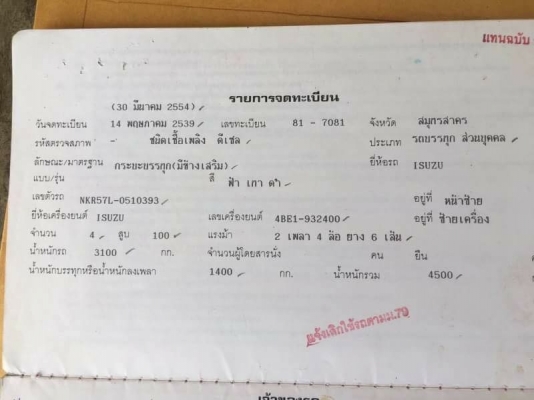 แทนฉบับ
รายการจดทะเบียน
(30 มีนาคม 2554)
วันจดทะเบียน 14 พฤษภาคม 2539 เลขทะเบียน 81 - 7081 จังหวัด สมุทรสาคร
รหัสตรวจสภาพ - ชนิดเชื้อเพลิง ดีเซล ประเภท รถบรรทุก ส่วนบุคคล
ลักษณะ/มาตรฐาน กระบะบรรทุก(มีข้างเสริม) ยี่ห้อรถ ISUZU
แบบ/รุ่น สี ฟ้า เทา ดำ
เลขตัวรถ NKR57L-0510393 อยู่ที่ หน้าซ้าย
ยี่ห้อเครื่องยนต์ ISUZU เลขเครื่องยนต์ 4BE1-932400 อยู่ที่ ซ้ายเครื่อง
จำนวน 4 สูบ 100 แรงม้า 2 เพลา 4 ล้อ ยาง 6 เส้น
น้ำหนักรถ 3100 กก. จำนวนผู้โดยสารนั่ง คน ยืน
น้ำหนักบรรทุกหรือน้ำหนักลงเพลา 1400 กก. น้ำหนักรวม 4500
แจ้งเลิกใช้รถตามม.79
เจ้าของรถ